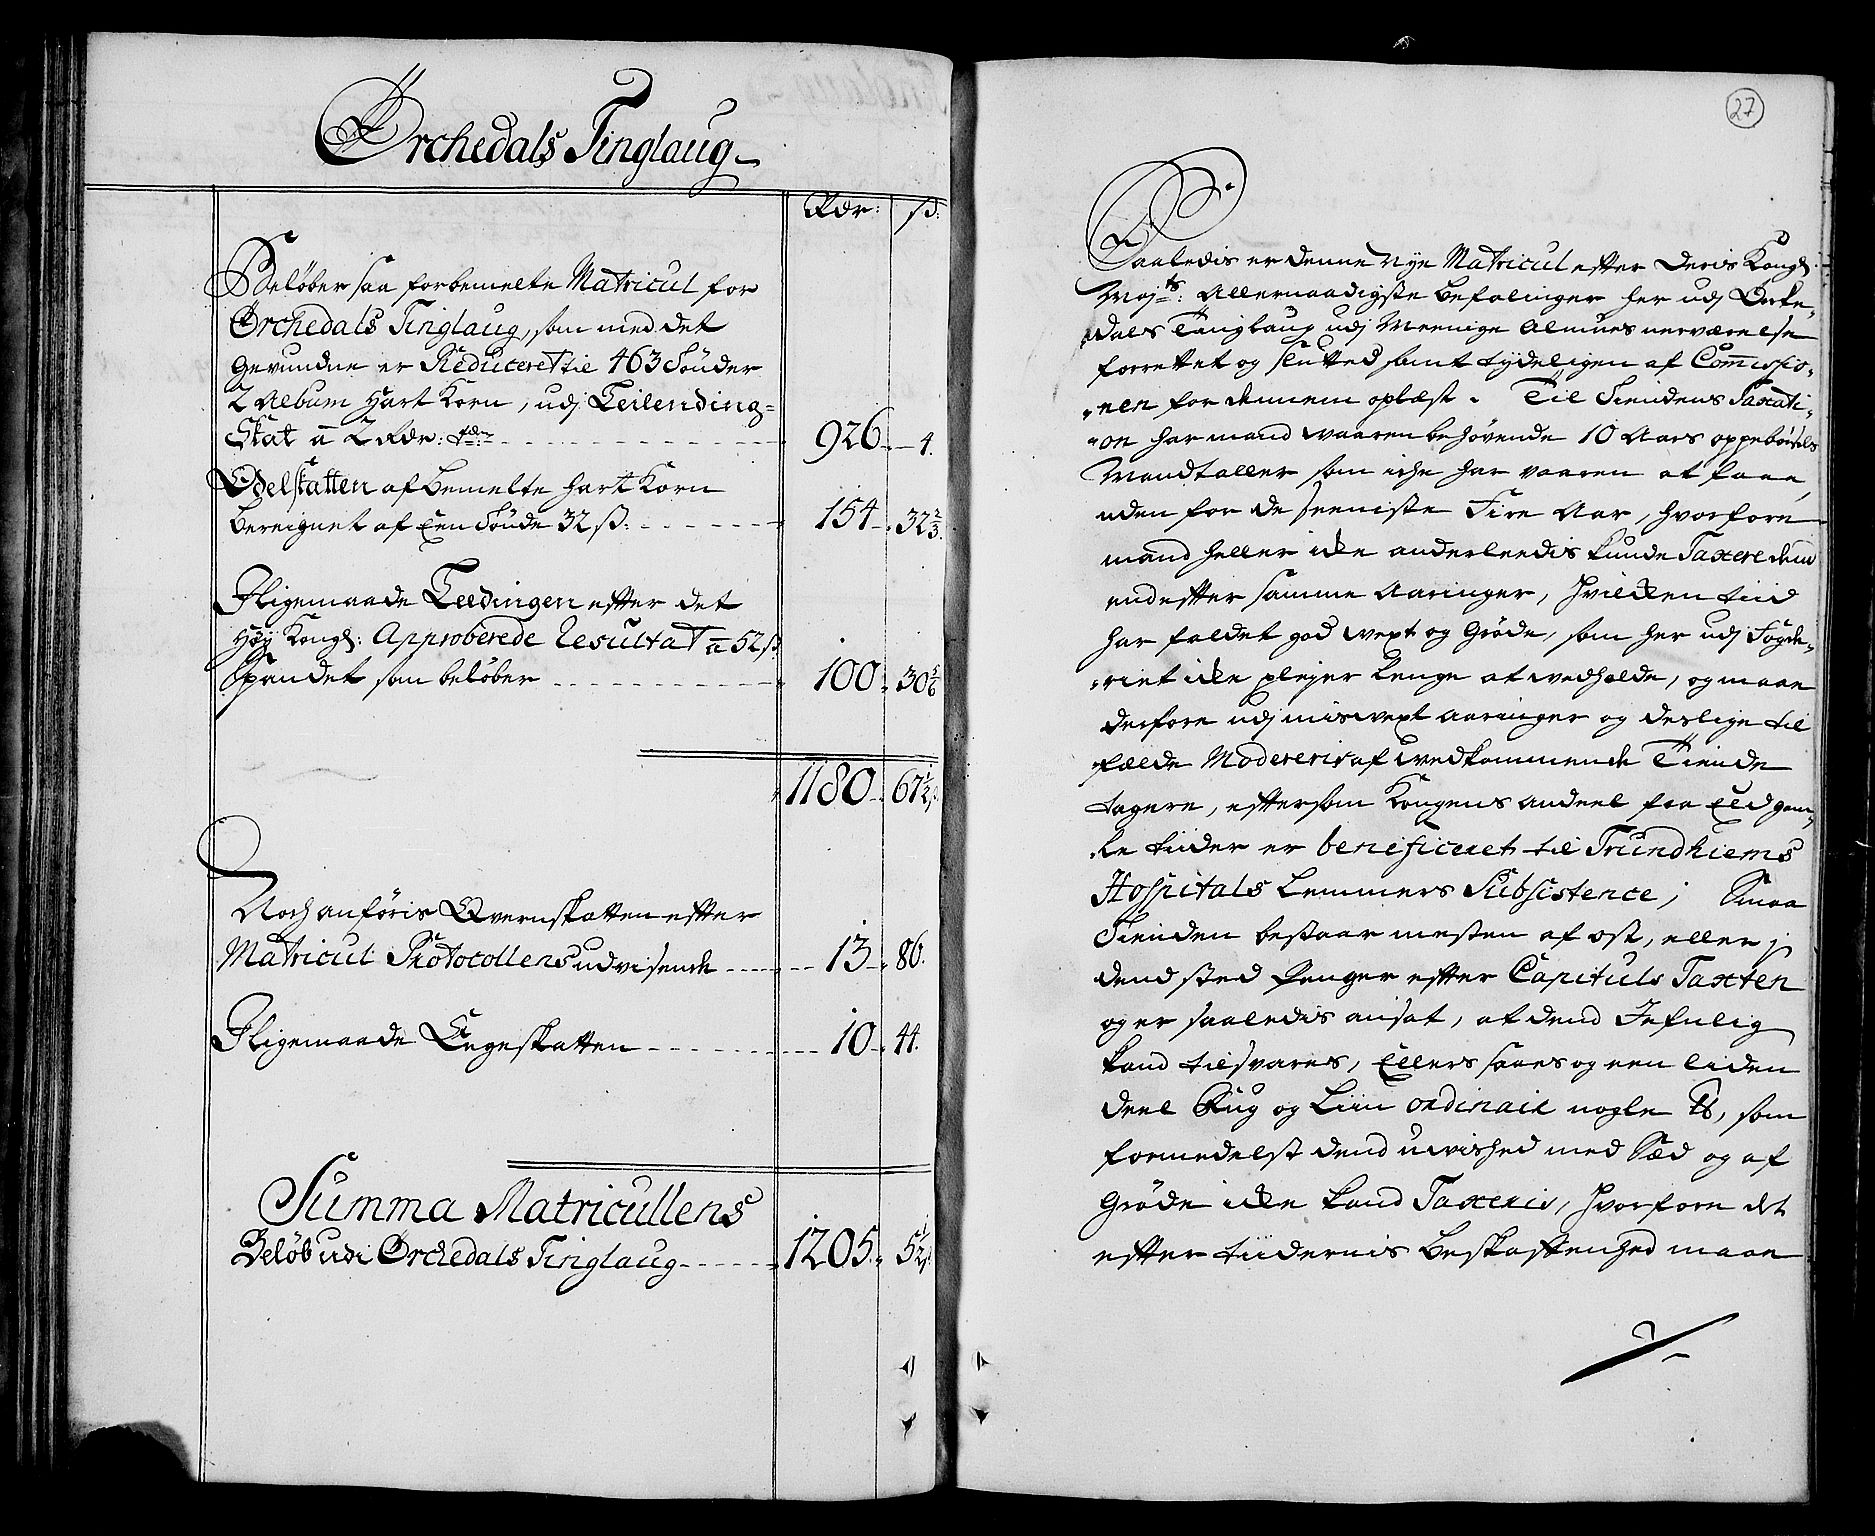 Ørchedals Tinglaug
Rdr: ß:
Beløber saa forbemelte Matricul for
Ørchedals Tinglaug, som med det
gevundne er Reduceret til 463 Tønder
2 Album Hart Korn, udj Leilending=
Skat â 2 Rdr: 926 4.
Odelskatten af bemelte Hart Korn
bereignet af Een Tønde 32 ß: 154 32 2/3.
Iligemaade Leedingen efter det
Høy Kongl: Approberede Resultat â 52 ß
Spandet som beløber 100 30 5/6
1180 67 1/2 ß.
Noch anføris Qvernskatten efter
Matricul Protocollens udvisende 13 86.
Iligemaade Sugeskatten 10 44.
Summa Matricullens
Beløb udi Ørchedals Tinglaug 1205. 5 1/2 ß.
27
Saaledis er denne nye Matricul efter Deris Kongl:
Mayts: Allernaadigste befalinger her udj Orke-
dals Tinglaug udj Meenige Almues nerværelse
forrettet og slutted samt tydeligen af Commissio-
nen for dennem oplæst. Til Tiendens Taxati-
on har mand waaren behøvende 10 Aars oppebørsels
Mandtaller som iche har vaaren at faae,
uden for de seeniste Fire Aar, hvorfore
mand heller icke anderleedis kunde Taxere dem
end efter samme Aaringer, hvilcken tiid
har faldet god wext og Grøde, som her udj Fogde-
riet icke plejer lenge at wedholde, og maae
derfore udj miswext Aaringer og deslige til
fælde Modereris af wedkommende Tiende
tagere, eftersom Kongens andeel fra Eld gam-
le tiider er beneficeret til Trundhiems
Hospitals Lemmers Subsistence; Smaa
Tienden bestaar mesten af ost, eller j
dend sted Penger efter Capituls Taxten
og er saaledis ansat, at dend
kand tilsvares, Ellers saaes og een liden
deel Rug og Liin ordinair nogle ℔, som
formedelst dend uwished med Sæd og af
Grøde icke kand Taxeris, hvorfore det
efter tiidernis beskaffenhed maae